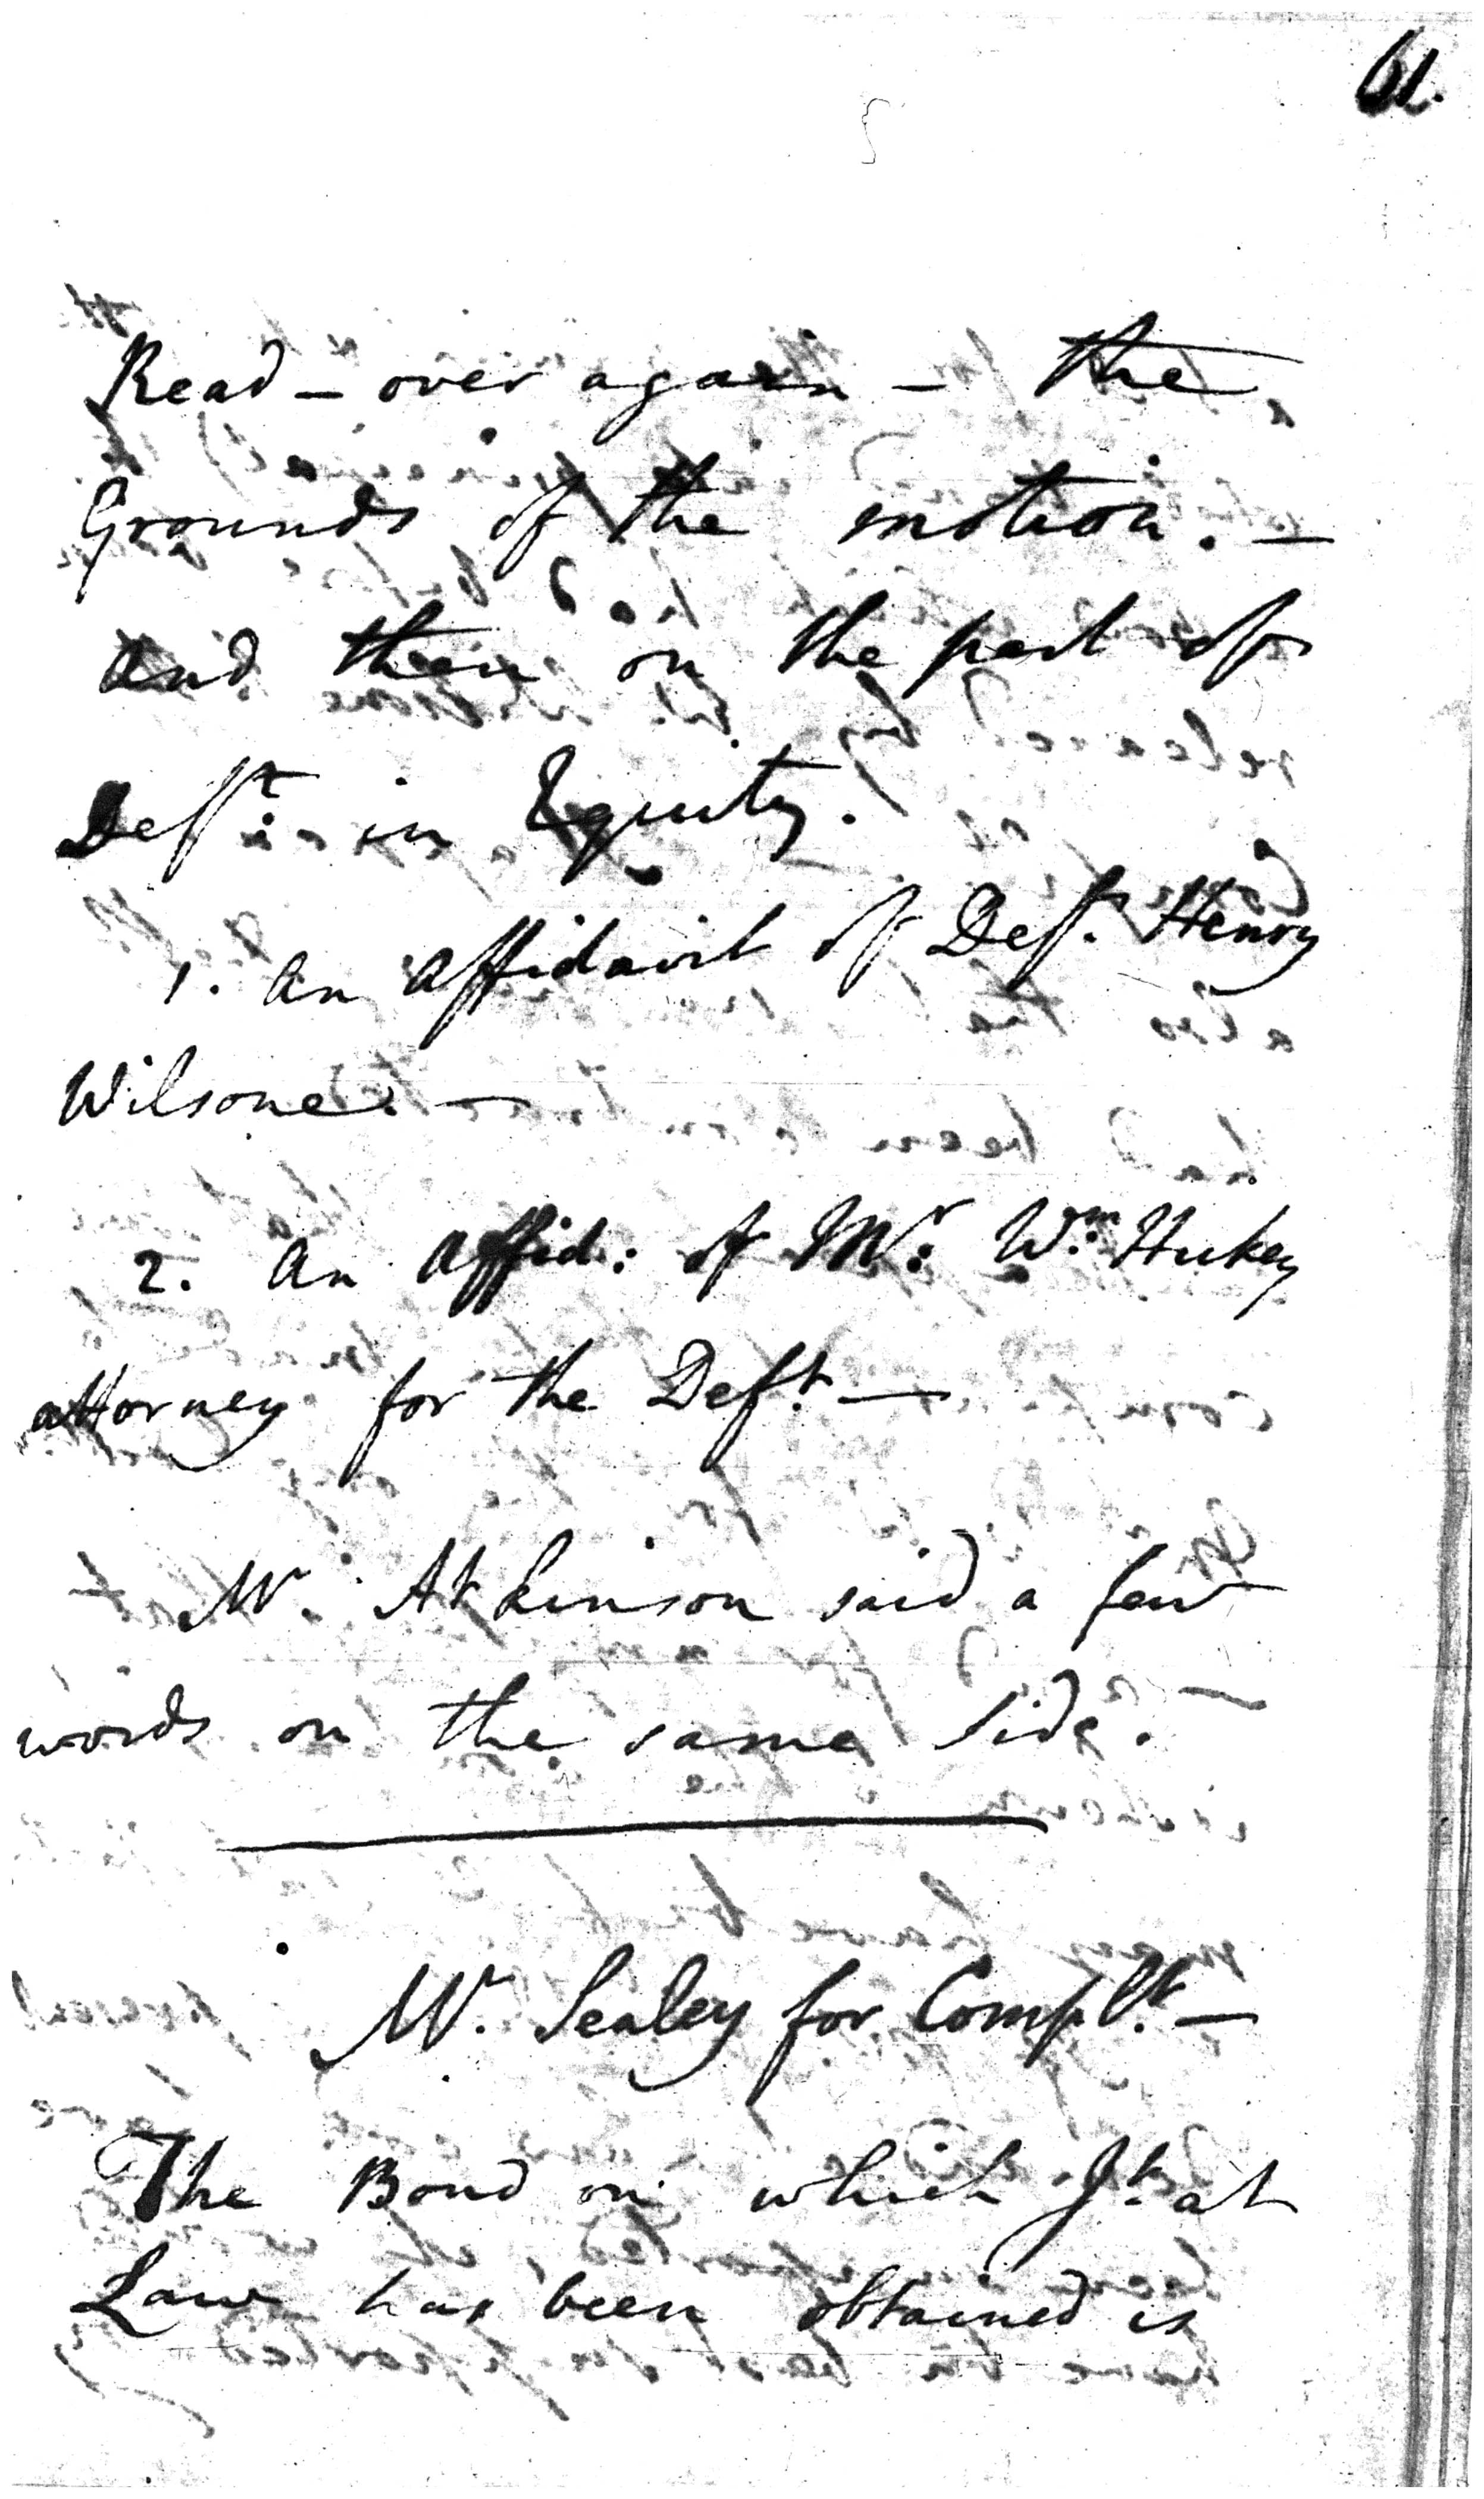 61.
Read – over again – the
Grounds of the motion. –
and then on the part of
Deft: in Equity.
1. An Affidavit of Deft. Henry
Wilsone. –
2. An Affid: of Mr: Wm: Hickey
attorney for the Deft. –
Mr. Atkinson said a few
words on the same side.
Mr. Sealey for Complt. –
The Bond on which Jt. at
Law has been obtained is